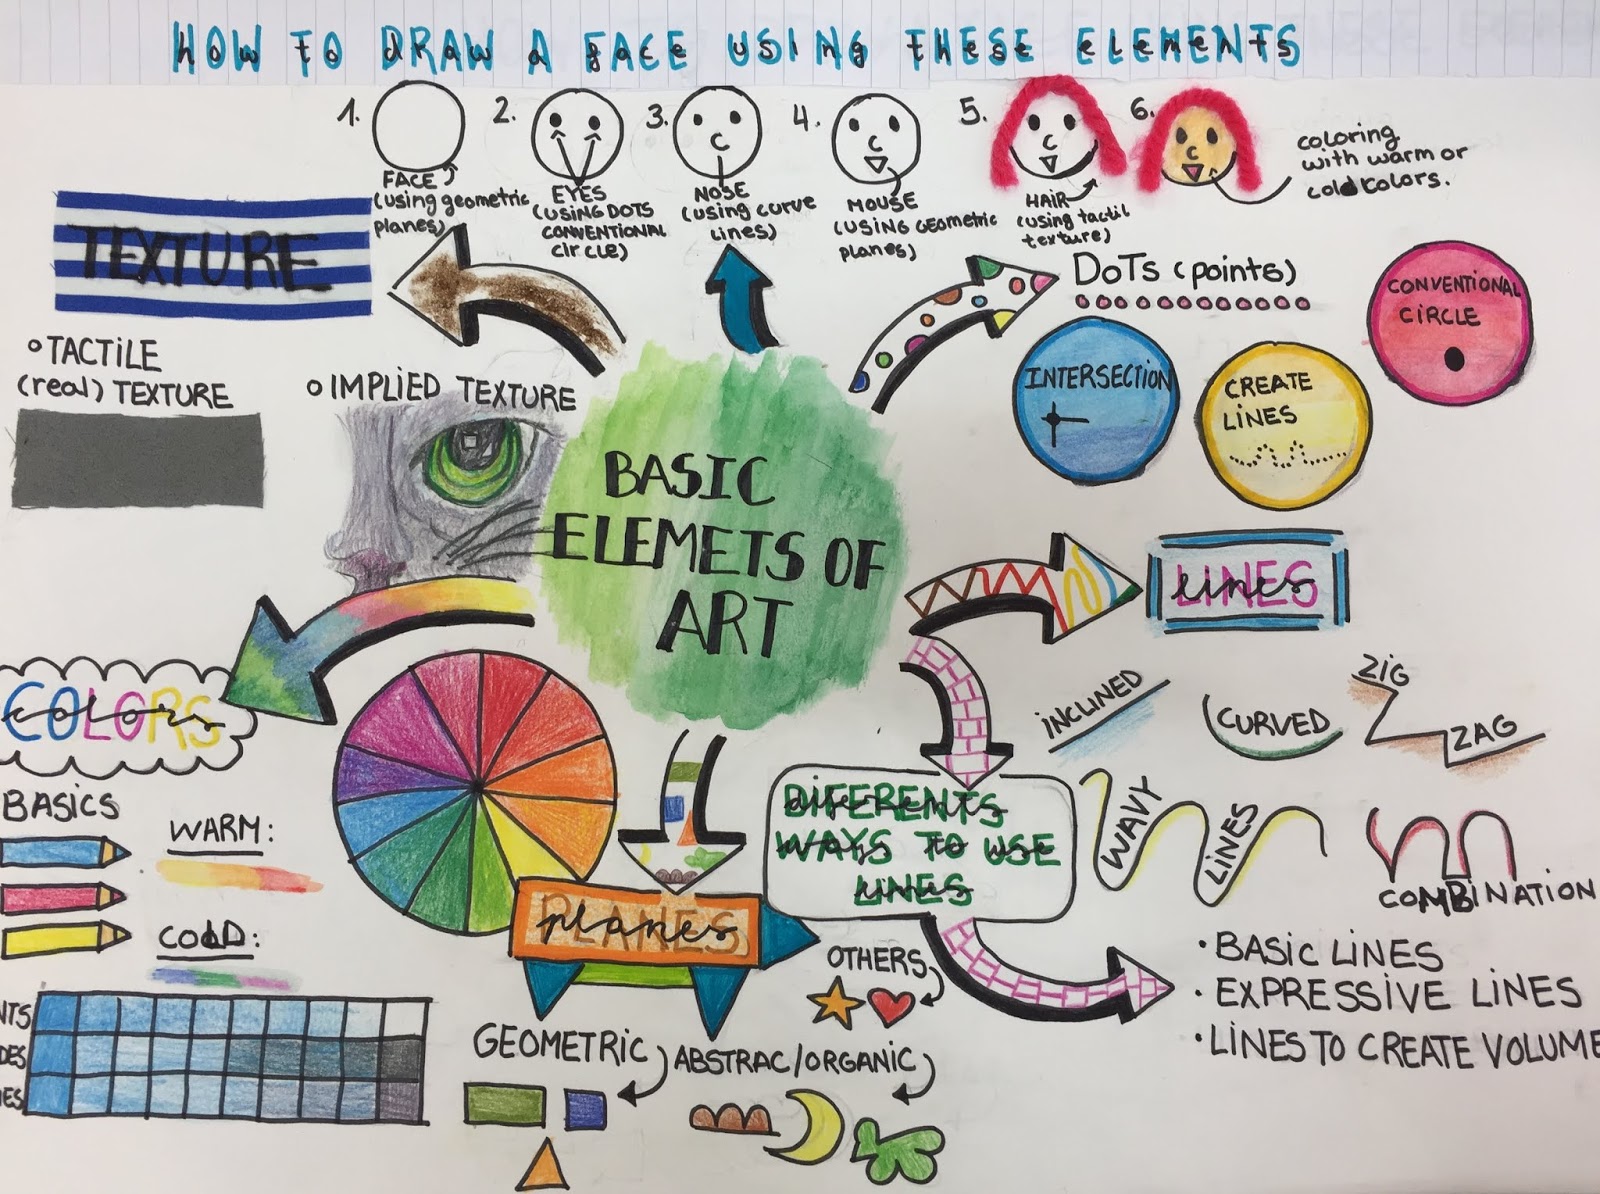 HOW TO DRAW A face USING THESE ELEMENTS
1.
FACE
(using geometric
planes)
2.
EYES
(USING DOTS
CONVENTIONAL
CIRCLE)
3.
NOSE
(using curve
lines)
4.
MOUSE
(USING GEOMETRIC
planes)
5.
HAIR
(using tactil
texture)
6.
coloring
with warm or
cold colors.
TEXTURE
TACTILE
(real) TEXTURE
IMPLIED TEXTURE
DOTS (points)
INTERSECTION
CREATE
LINES
CONVENTIONAL
CIRCLE
BASIC
ELEMETS OF
ART
LINES
INCLINED
CURVED
ZIG
ZAG
WAVY
LINES
COMBINATION
COLORS
BASICS
WARM:
COLD:
PLANES
DIFERENTS
WAYS TO USE
LINES
OTHERS
GEOMETRIC
ABSTRAC/ORGANIC
· BASIC LINES
· EXPRESSIVE LINES
· LINES TO CREATE VOLUME